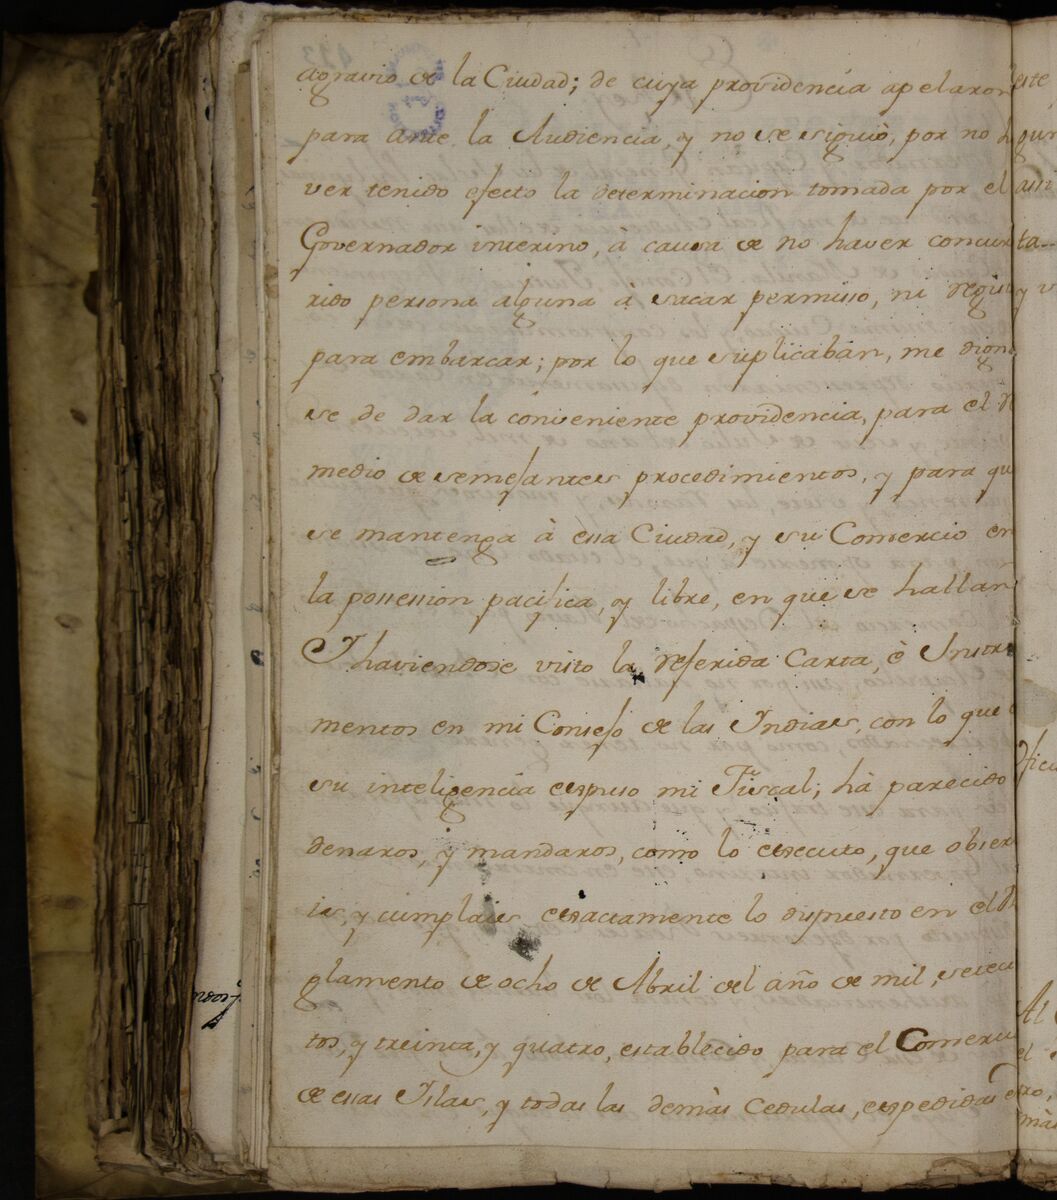 agravio de la Ciudad; de cuya providencia apelaron
para ante la Audiencia, y no se siguiò, por no ha
ver tenido efecto la determinacion tomada por el
Governador interino, a causa de no haver concur
rido persona alguna à sacar permisso, ni registro
para embarcar; por lo que suplicaban, me digna
se de dar la conveniente providencia, para el re
medio de semejantes procedimientos, y para que
se mantenga à essa Ciudad, y su Comercio en
la possession pacifica, y libre, en que se hallan
Y haviendose visto la referida Carta, è Instru
mentos en mi Consejo de las Indias, con lo que
su inteligencia expuso mi Fiscal; hà parecido
denaros, y mandaros, como lo executo, que obser
is, y cumplais exactamente lo dispuesto en el Re
glamento de ocho de Abril del año de mil, setecien
tos, y treinta, y quatro, establecido para el Comercio
de essas Islas, y todas las demàs Cedulas, expedidas